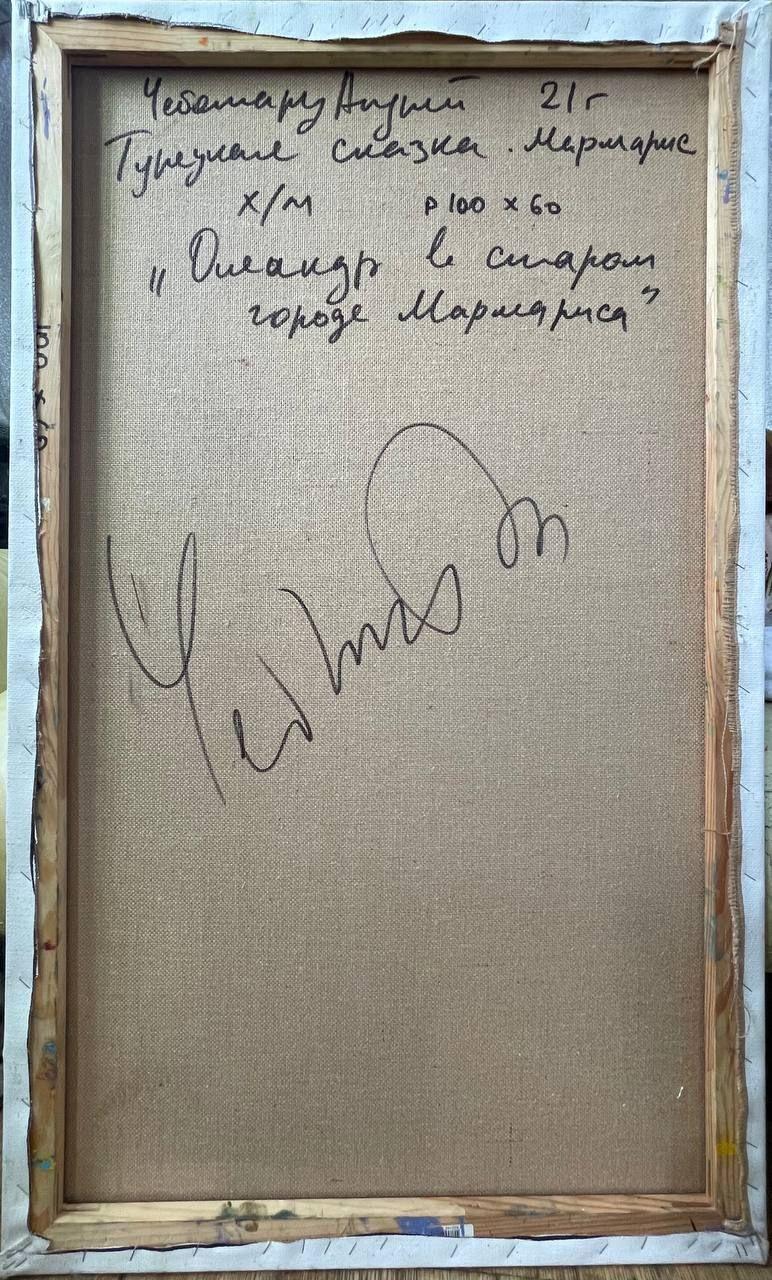 Чеботару Андрей 21г
Турецкая сказка. Мармарис
х/м р 100 х 60
„Олеандр в старом
городе Мармариса”
100 х 60